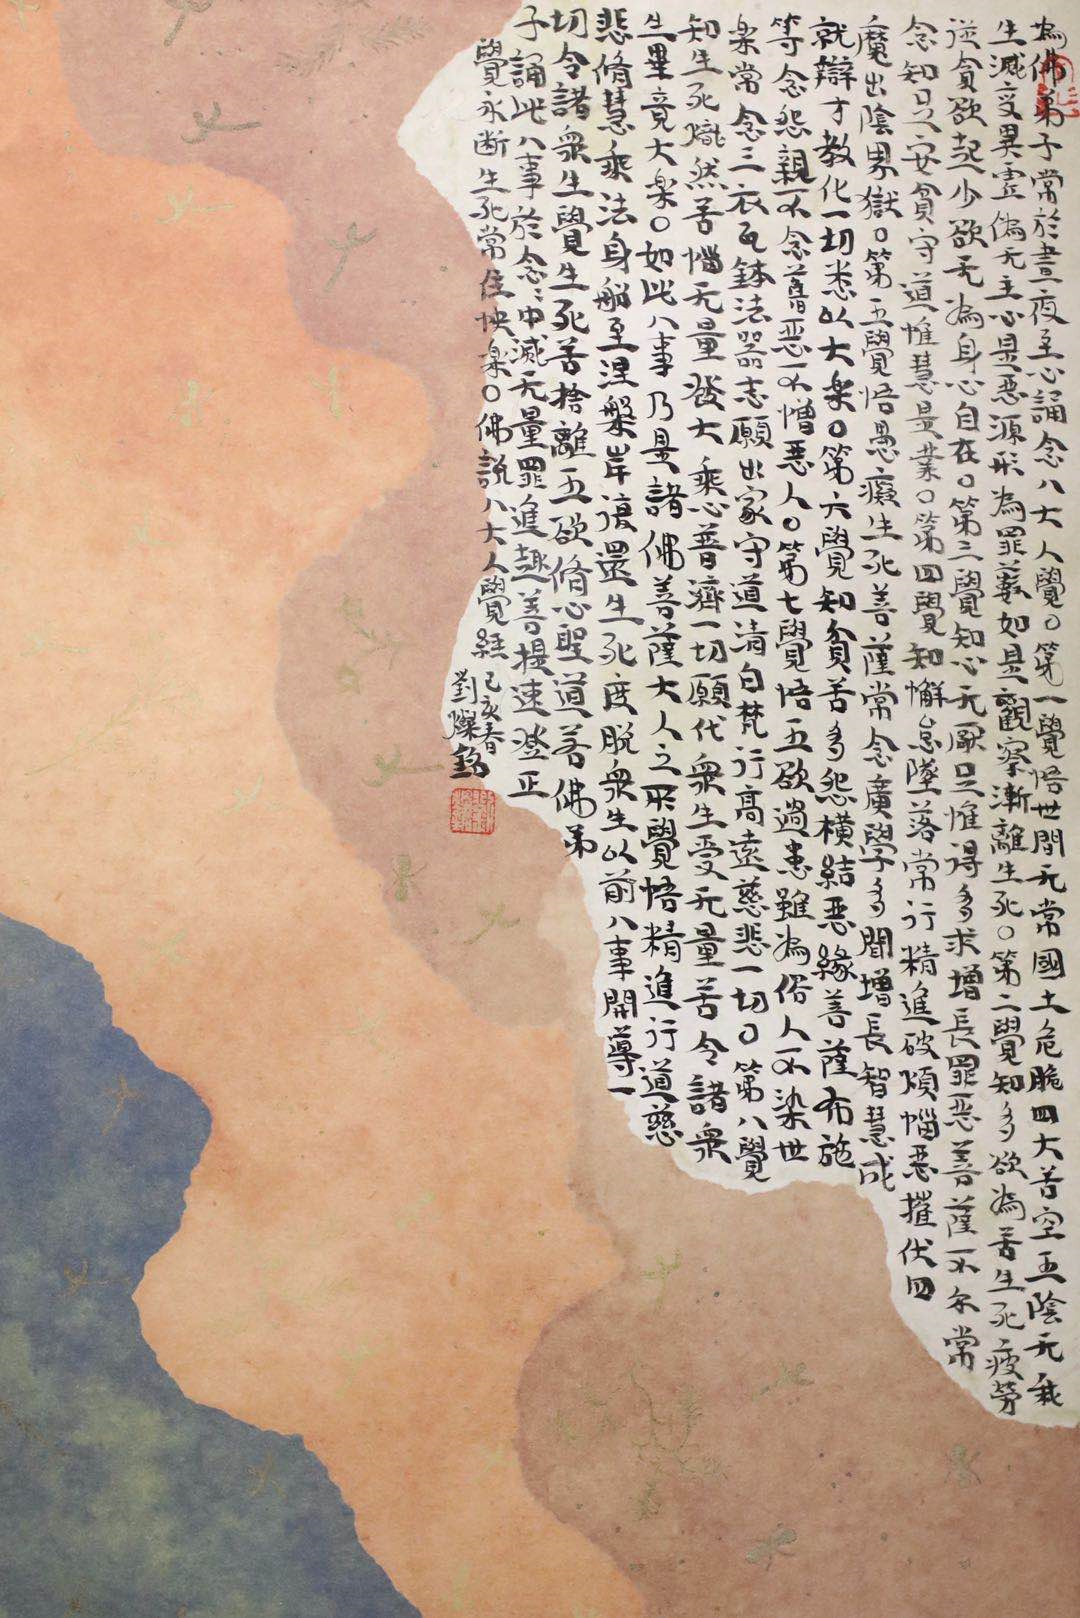 為佛弟子常於晝夜至心誦念八大人覺〇第一覺悟世間无常國土危脆四大苦空五陰无我
生滅变異虛偽无主心是惡源形為罪藪如是觀察漸離生死〇第二覺知多欲為苦生死疲勞
從貪欲起少欲无為身心自在〇第三覺知心无厭足惟得多求增長罪惡菩薩不尒常
念知足安貧守道惟慧是業〇第四覺知懈怠墜落常行精進破煩惱惡摧伏四
魔出陰界獄〇第五覺悟愚癡生死菩薩常念廣學多聞增長智慧成
就辯才教化一切悉以大楽〇第六覺知貧苦多怨橫結惡緣菩薩布施
等念怨親不念舊惡不憎惡人〇第七覺悟五欲過患雖為俗人不染世
楽常念三衣瓦鉢法器志願出家守道清白梵行高遠慈悲一切〇第八覺
知生死熾然苦惱无量發大乘心普濟一切願代衆生受无量苦令諸衆
生畢竟大楽〇如此八事乃是諸佛菩薩大人之所覺悟精進行道慈
悲脩慧乘法身船至涅槃岸復還生死度脫衆生以前八事開導一
切令諸衆生覺生死苦捨離五欲脩心聖道若佛弟
子誦此八事於念〻中滅无量罪進趣菩提速登正
覺永断生死常住快楽〇佛説八大人覺経
己亥春
劉燦銘